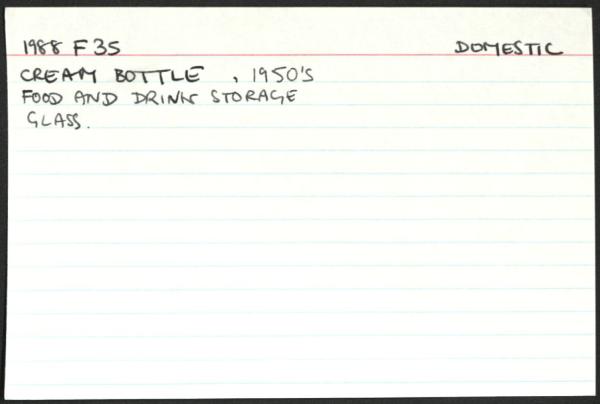 1988 F 35 DOMESTIC
CREAM BOTTLE , 1950'S
FOOD AND DRINK STORAGE
GLASS.